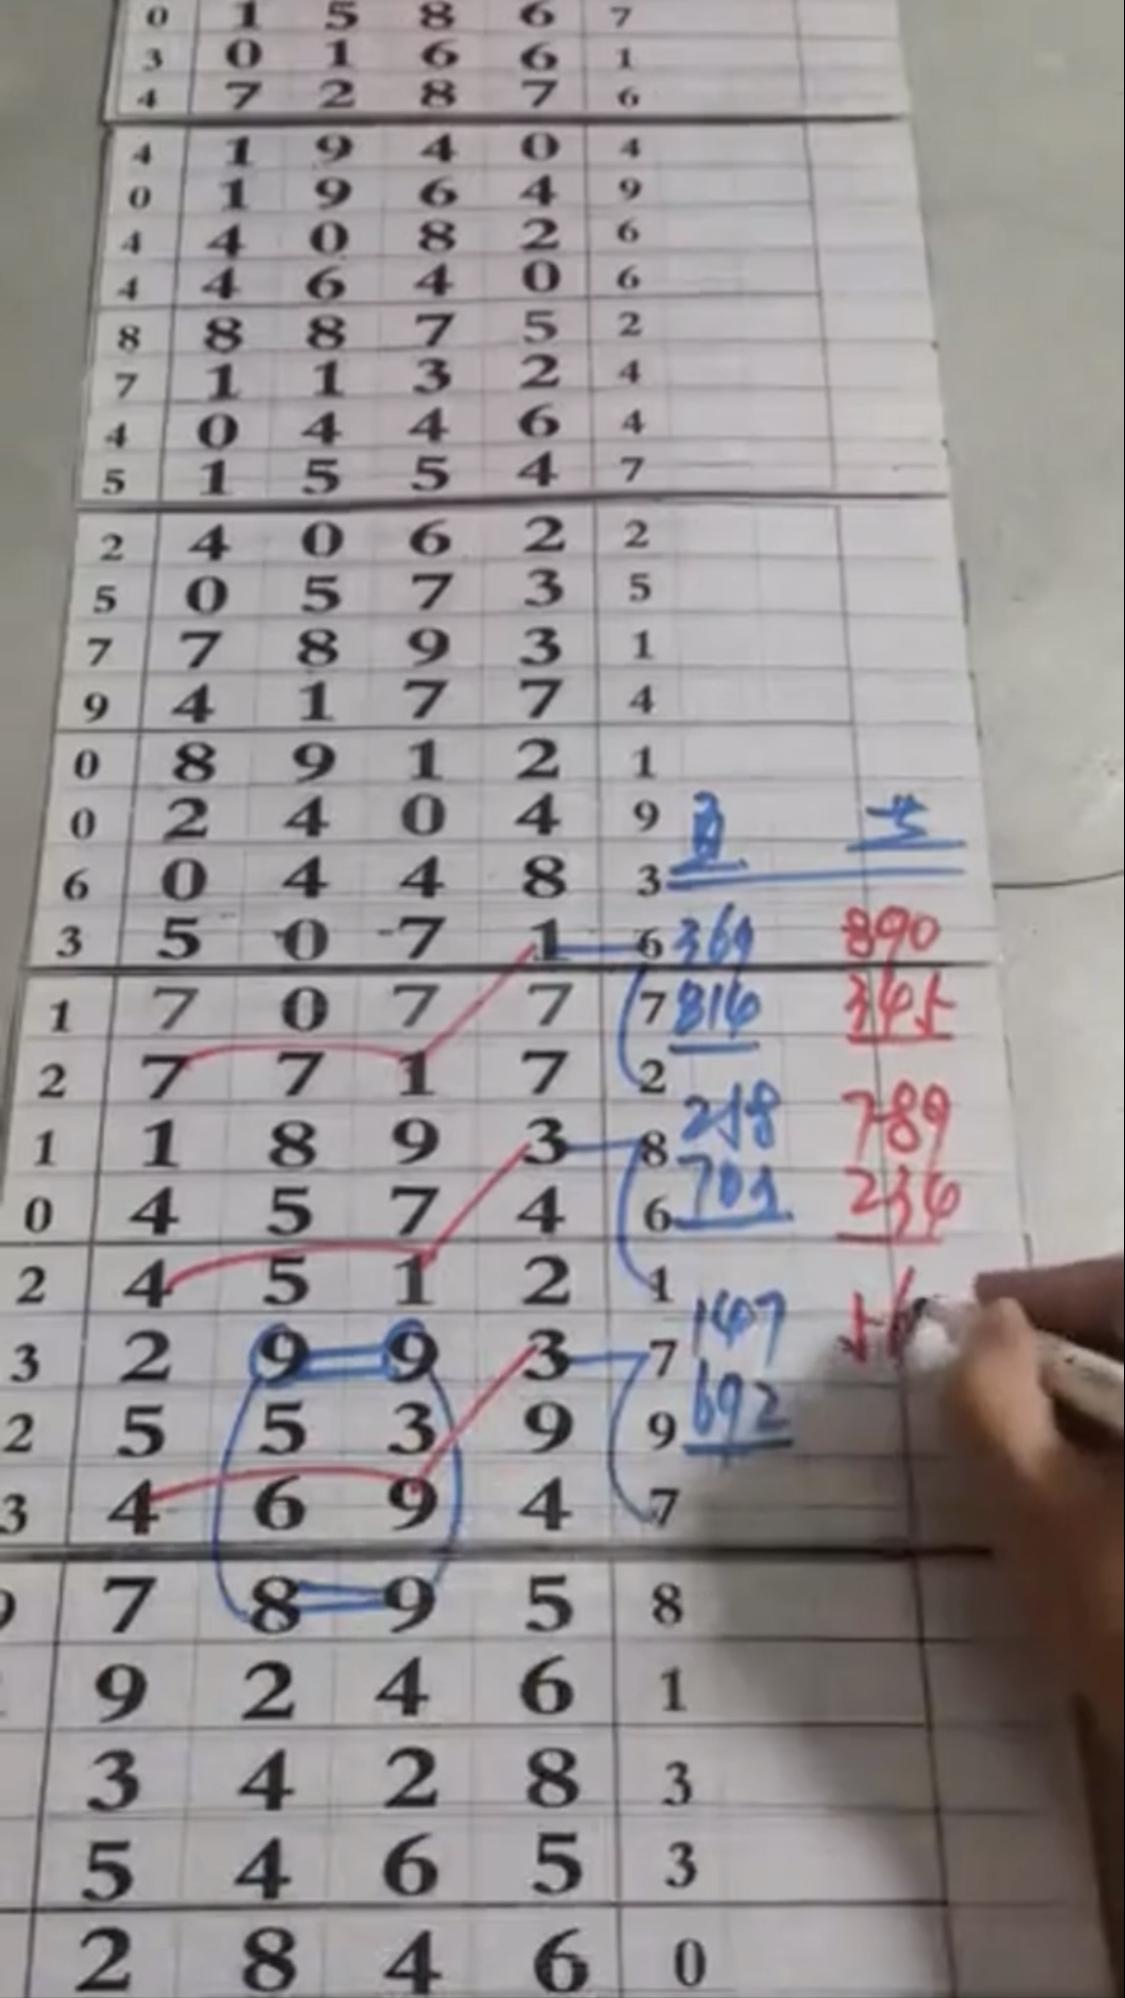 0 1 5 8 6 7
3 0 1 6 6 1
4 7 2 8 7 6
4 1 9 4 0 4
0 1 9 6 4 9
4 4 0 8 2 6
4 4 6 4 0 6
8 8 8 7 5 2
7 1 1 3 2 4
4 0 4 4 6 4
5 1 5 5 4 7
2 4 0 6 2 2
5 0 5 7 3 5
7 7 8 9 3 1
9 4 1 7 7 4
0 8 9 1 2 1
0 2 4 0 4 9 百
6 0 4 4 8 3
3 5 0 7 1 6 369 890
1 7 0 7 7 7 814 345
2 7 7 1 7 2
1 1 8 9 3 8 258 789
0 4 5 7 4 6 703 234
2 4 5 1 2 1
3 2 9 9 3 7 147 56
2 5 5 3 9 9 692
3 4 6 9 4 7
9 7 8 9 5 8
9 2 4 6 1
3 4 2 8 3
5 4 6 5 3
2 8 4 6 0